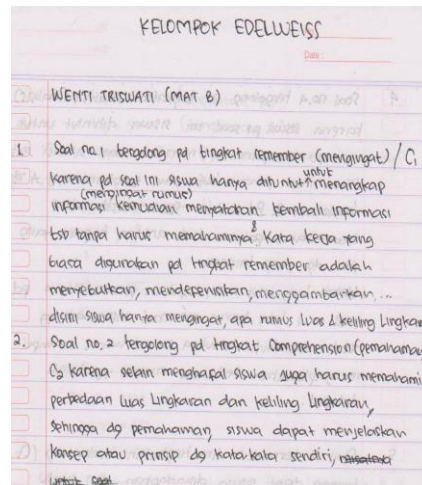 KELOMPOK EDELWEISS
Date :
WENTI TRISWATI (MAT B)
1. Soal no. 1 tergolong pd tingkat remember (mengingat) / C1
karena pd soal ini siswa hanya dituntut untuk menangkap
(mengingat rumus)
informasi kemudian menyatakan kembali informasi
tsb tanpa harus memahaminya & kata kerja yang
biasa digunakan pd tingkat remember adalah
menyebutkan, mendefenisikan, menggambarkan, ...
disini siswa hanya mengingat, apa rumus luas & keliling Lingkaran
2. Soal no. 2 tergolong pd tingkat Comprehension (pemahaman)
C2 karena selain menghafal siswa juga harus memahami
perbedaan luas Lingkaran dan keliling Lingkaran,
sehingga dg pemahaman, siswa dapat menjelaskan
konsep atau prinsip dg kata-kata sendiri,
untuk soal